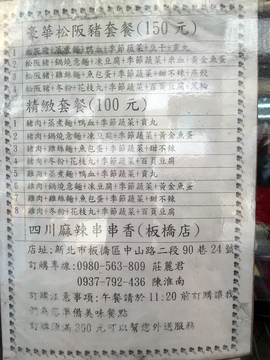 豪華松阪豬套餐(150 元)
1 松阪豬+蒸煮麵+鴨血+季節蔬菜+豆子+貢丸
2 松阪豬+鍋燒意麵+凍豆腐+季節蔬菜+米血+黃金魚蛋
3 松阪豬+雞絲麵+魚包蛋+季節蔬菜+甜不辣+燕餃
4 松阪豬+冬粉+花枝丸+季節蔬菜+百頁豆腐+黑輪
精緻套餐(100 元)
1 豬肉+蒸煮麵+鴨血+季節蔬菜+貢丸
2 豬肉+鍋燒意麵+凍豆腐+季節蔬菜+黃金魚蛋
3 豬肉+雞絲麵+魚包蛋+季節蔬菜+甜不辣
4 豬肉+冬粉+花枝丸+季節蔬菜+百頁豆腐
5 雞肉+蒸煮麵+鴨血+季節蔬菜+貢丸
6 雞肉+鍋燒意麵+凍豆腐+季節蔬菜+黃金魚蛋
7 雞肉+雞絲麵+魚包蛋+季節蔬菜+甜不辣
8 雞肉+冬粉+花枝丸+季節蔬菜+百頁豆腐
四川麻辣串串香(板橋店)
店址:新北市板橋區中山路二段 90 巷 24 號
訂購專線:0980-563-809 莊麗君
0937-792-436 陳淮南
訂購注意事項:午餐請於 11:20 前訂購讓我
們為您準備美味餐點
訂購須滿 300 元可以幫您外送服務